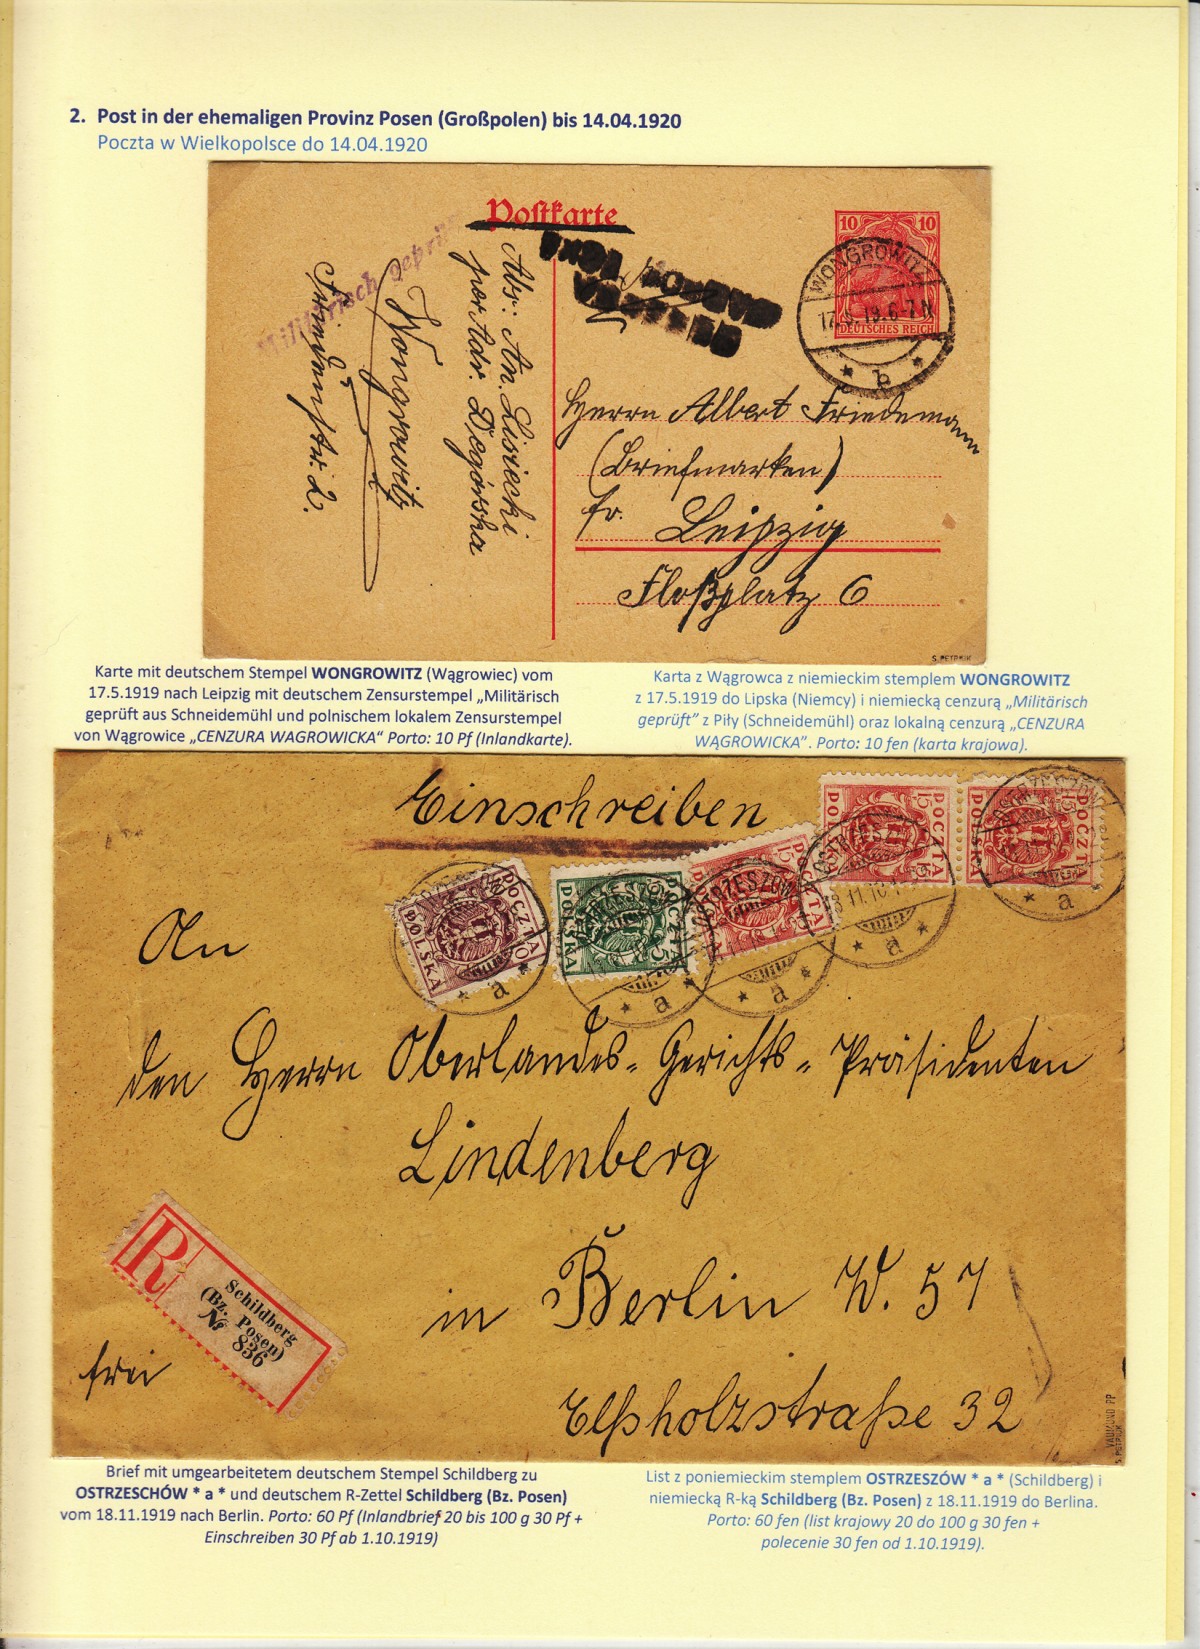 2. Post in der ehemaligen Provinz Posen (Großpolen) bis 14.04.1920
Poczta w Wielkopolsce do 14.04.1920
Postkarte
10 10
DEUTSCHES REICH
WONGROWITZ
17.5.19.6-7N
* b *
Militärisch geprüft
Abs: An. Lisiecki
per Adr. Degórska
Wongrowitz
str. 2.
Herrn Albert Friedemann
(Briefmarken)
fr. Leipzig
Floßplatz 6
S. PETRIUK
Karte mit deutschem Stempel WONGROWITZ (Wągrowiec) vom
17.5.1919 nach Leipzig mit deutschem Zensurstempel „Militärisch
geprüft aus Schneidemühl und polnischem lokalem Zensurstempel
von Wągrowice „CENZURA WAGROWICKA“ Porto: 10 Pf (Inlandkarte).
Karta z Wągrowca z niemieckim stemplem WONGROWITZ
z 17.5.1919 do Lipska (Niemcy) i niemiecką cenzurą „Militärisch
geprüft” z Piły (Schneidemühl) oraz lokalną cenzurą „CENZURA
WĄGROWICKA”. Porto: 10 fen (karta krajowa).
Einschreiben
POCZTA POLSKA 10
POCZTA POLSKA 5
POCZTA 15
POCZTA POLSKA 15
POCZTA POLSKA 15
OSTRZESZÓW
* a *
An
den Herrn Oberlandes-Gerichts-Präsidenten
Lindenberg
in Berlin W. 57
Elßholzstraße 32
R
Schildberg
(Bz. Posen)
№ 836
frei
S. PETRIUK
Brief mit umgearbeitetem deutschem Stempel Schildberg zu
OSTRZESCHÓW * a * und deutschem R-Zettel Schildberg (Bz. Posen)
vom 18.11.1919 nach Berlin. Porto: 60 Pf (Inlandbrief 20 bis 100 g 30 Pf +
Einschreiben 30 Pf ab 1.10.1919)
List z poniemieckim stemplem OSTRZESZÓW * a * (Schildberg) i
niemiecką R-ką Schildberg (Bz. Posen) z 18.11.1919 do Berlina.
Porto: 60 fen (list krajowy 20 do 100 g 30 fen +
polecenie 30 fen od 1.10.1919).